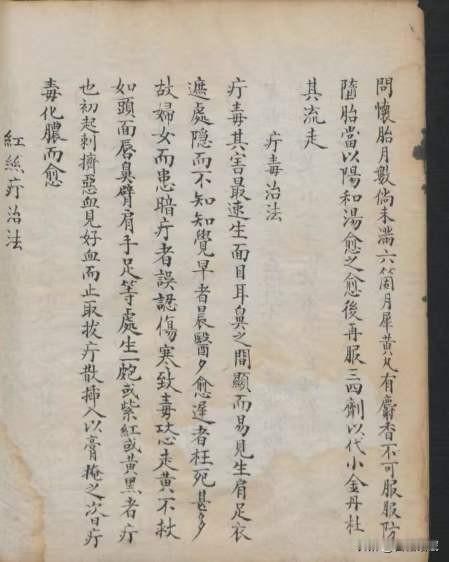 問懷胎月數倘未滿六箇月犀黃丸有麝香不可服服防
墮胎當以陽和湯愈之愈後再服三四劑以代小金丹杜
其流走
疔毒治法
疔毒其害最速生面目耳鼻之間顯而易見生肩足衣
遮處隱而不知知覺早者晨醫夕愈遲者枉死甚多
故婦女而患暗疔者誤認傷寒致毒攻心走黃不救
如頭面唇鼻臂肩手足等處生一皰或紫紅或黃黑者疔
也初起刺擠惡血見好血而止取拔疔散插入以膏掩之次日疔
毒化膿而愈
紅絲疔治法